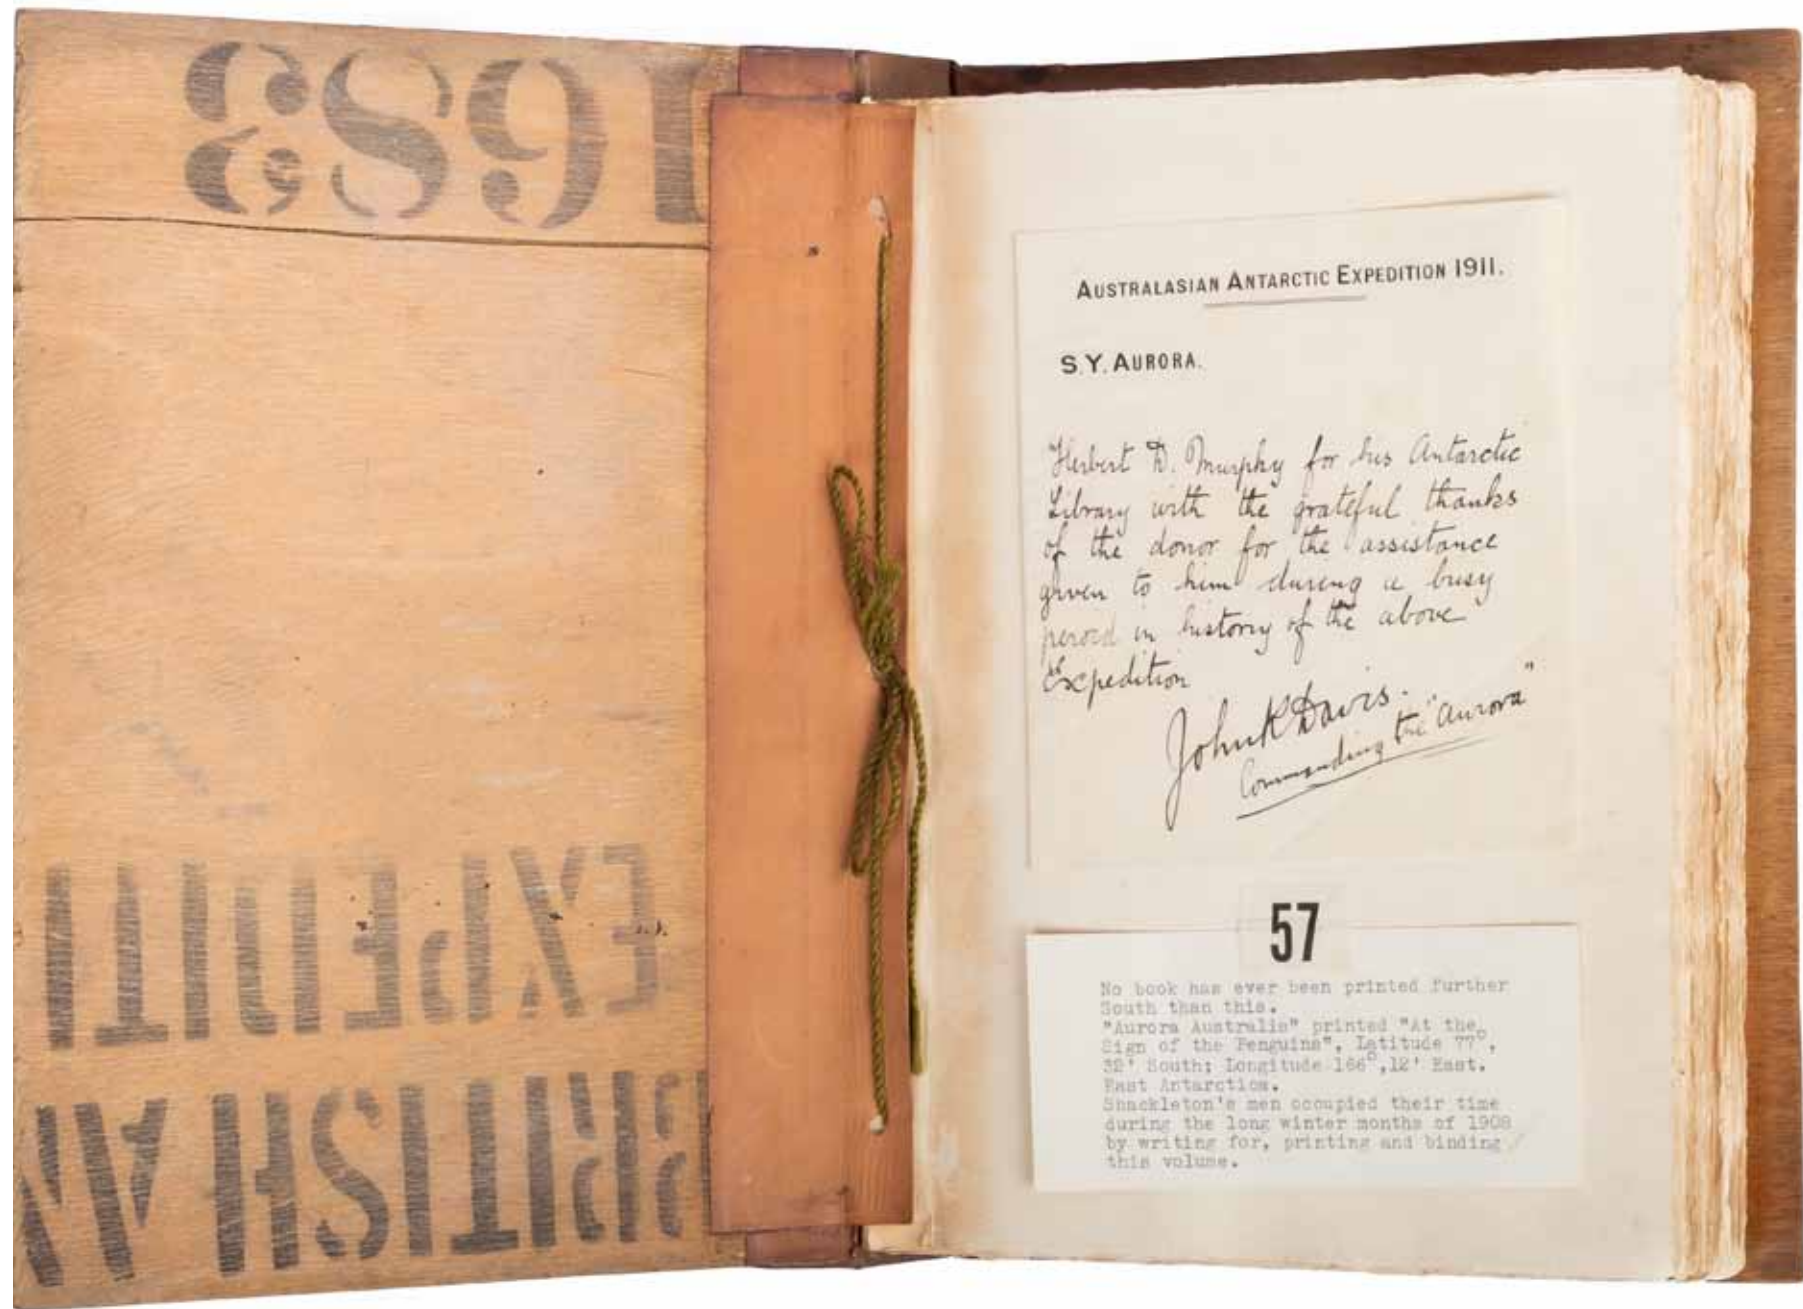 BRITISH AN
EXPEDITI
1683
AUSTRALASIAN ANTARCTIC EXPEDITION 1911.
S.Y. AURORA.
Herbert D. Murphy for his Antarctic
Library with the grateful thanks
of the donor for the assistance
given to him during a busy
period in history of the above
Expedition
John K Davis.
Commanding the "Aurora"
57
No book has ever been printed further
South than this.
"Aurora Australis" printed "At the
Sign of the Penguins", Latitude 77°,
32' South; Longitude 166°,12' East.
East Antarctica.
Shackleton's men occupied their time
during the long winter months of 1908
by writing for, printing and binding
this volume.